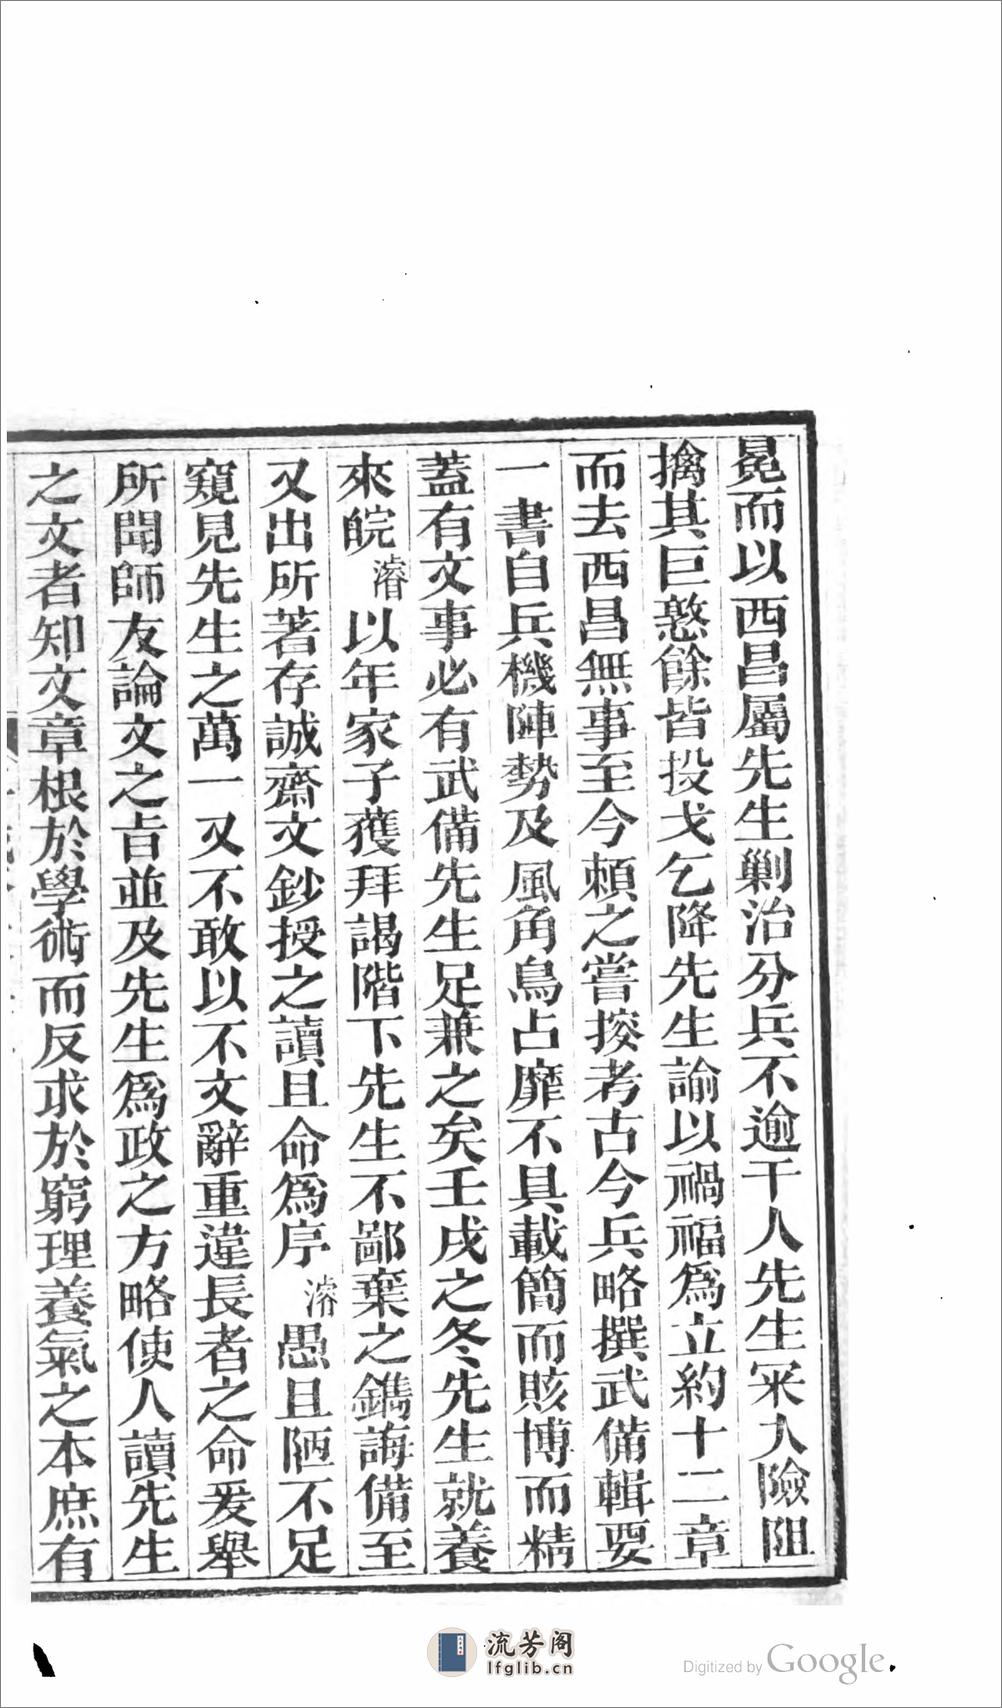 冕而以西昌屬先生剿治分兵不逾千人先生冞入險阻
擒其巨憝餘皆投戈乞降先生諭以禍福爲立約十二章
而去西昌無事至今頼之嘗按考古今兵略撰武備輯要
一書自兵機陣勢及風角鳥占靡不具載簡而賅博而精
蓋有文事必有武備先生足兼之矣壬戌之冬先生就養
來皖濬以年家子獲拜謁階下先生不鄙棄之鐫誨備至
又出所著存誠齋文鈔授之讀且命爲序濬愚且陋不足
窺見先生之萬一又不敢以不文辭重違長者之命爰舉
所聞師友論文之旨並及先生爲政之方略使人讀先生
之文者知文章根於學術而反求於窮理養氣之本庶有
流芳阁
lfglib.cn
Digitized by Google